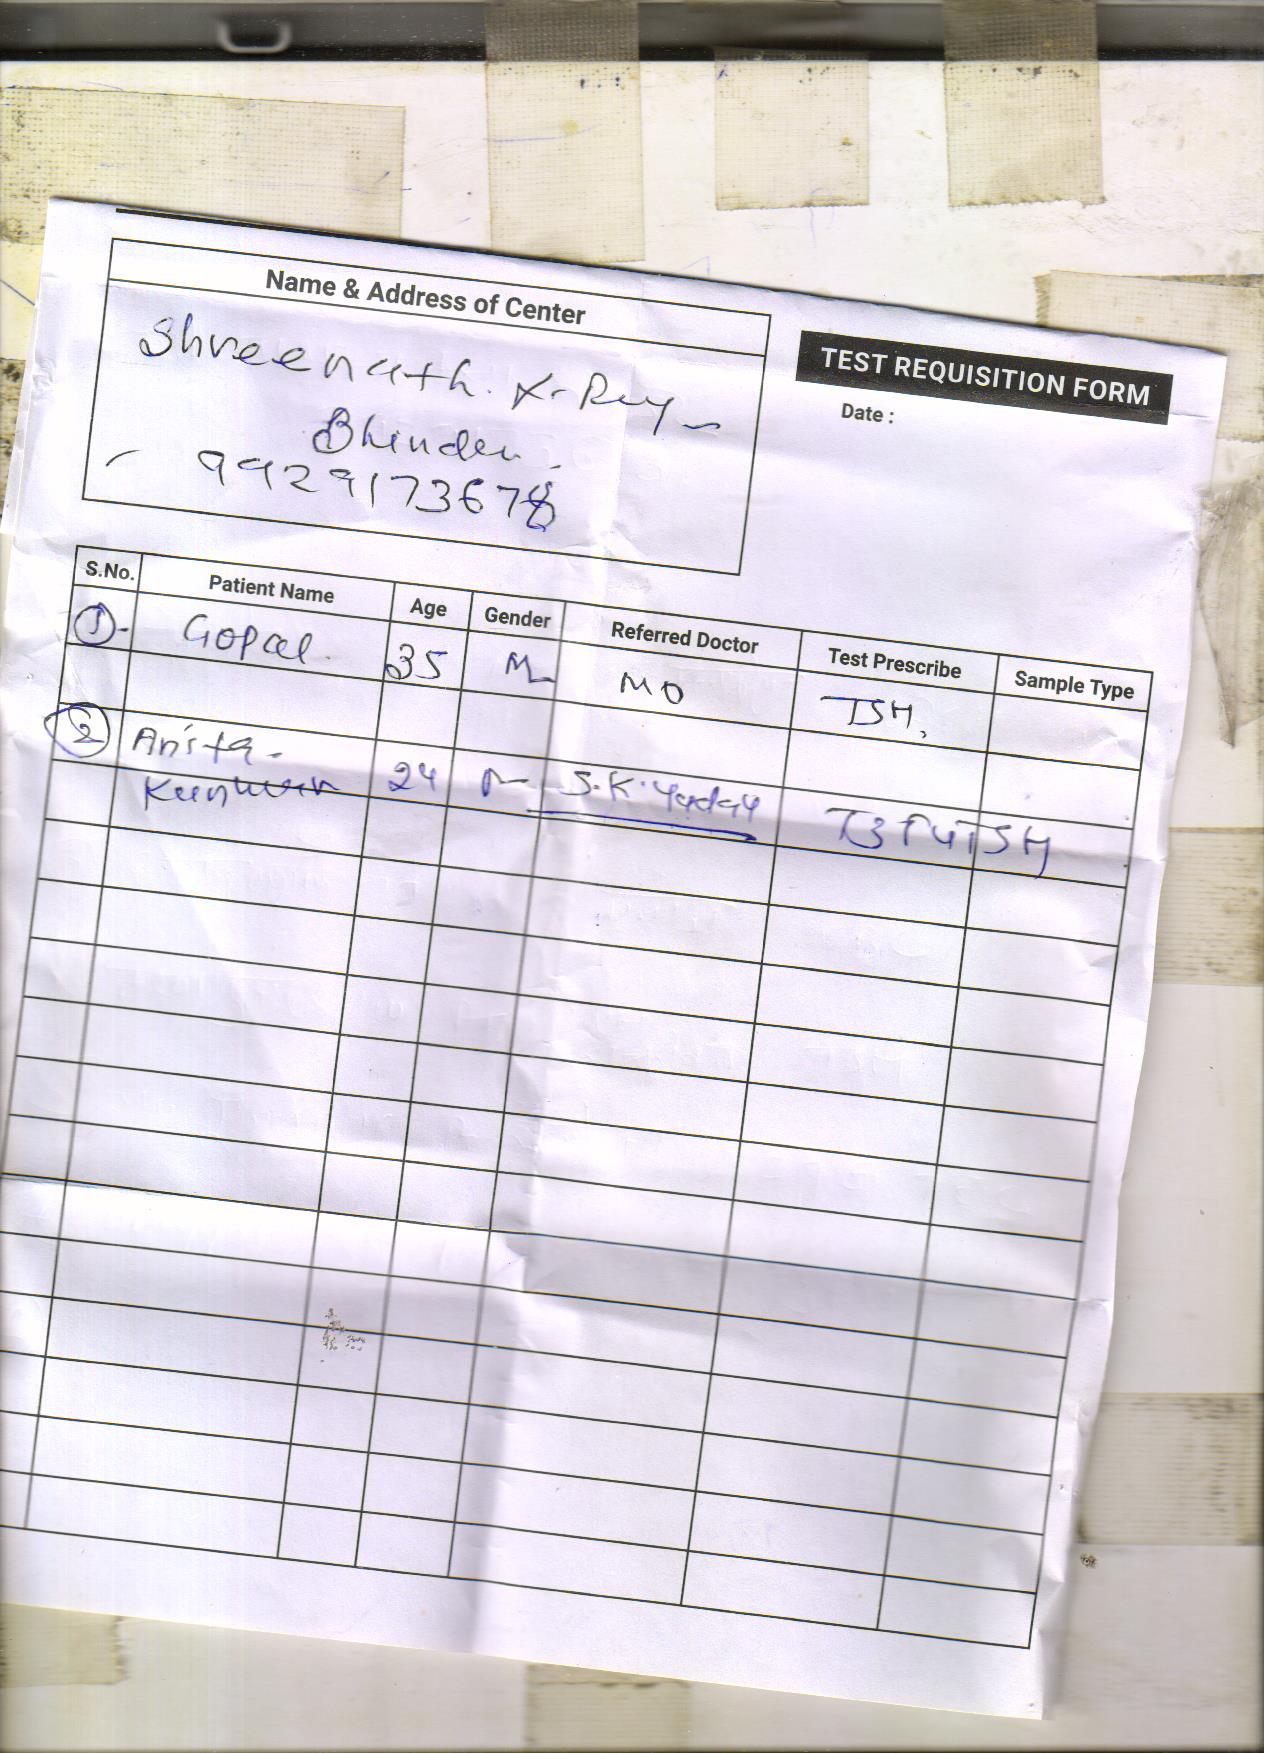 Name & Address of Center
Shreenath. X-Ray
Bhinder.
9929173678
TEST REQUISITION FORM
Date :
S.No. Patient Name Age Gender Referred Doctor Test Prescribe Sample Type
1 Gopal 35 M MO TSH.
2 Anita 24 S.K. Yadav T3 T4 TSH
Kunwar